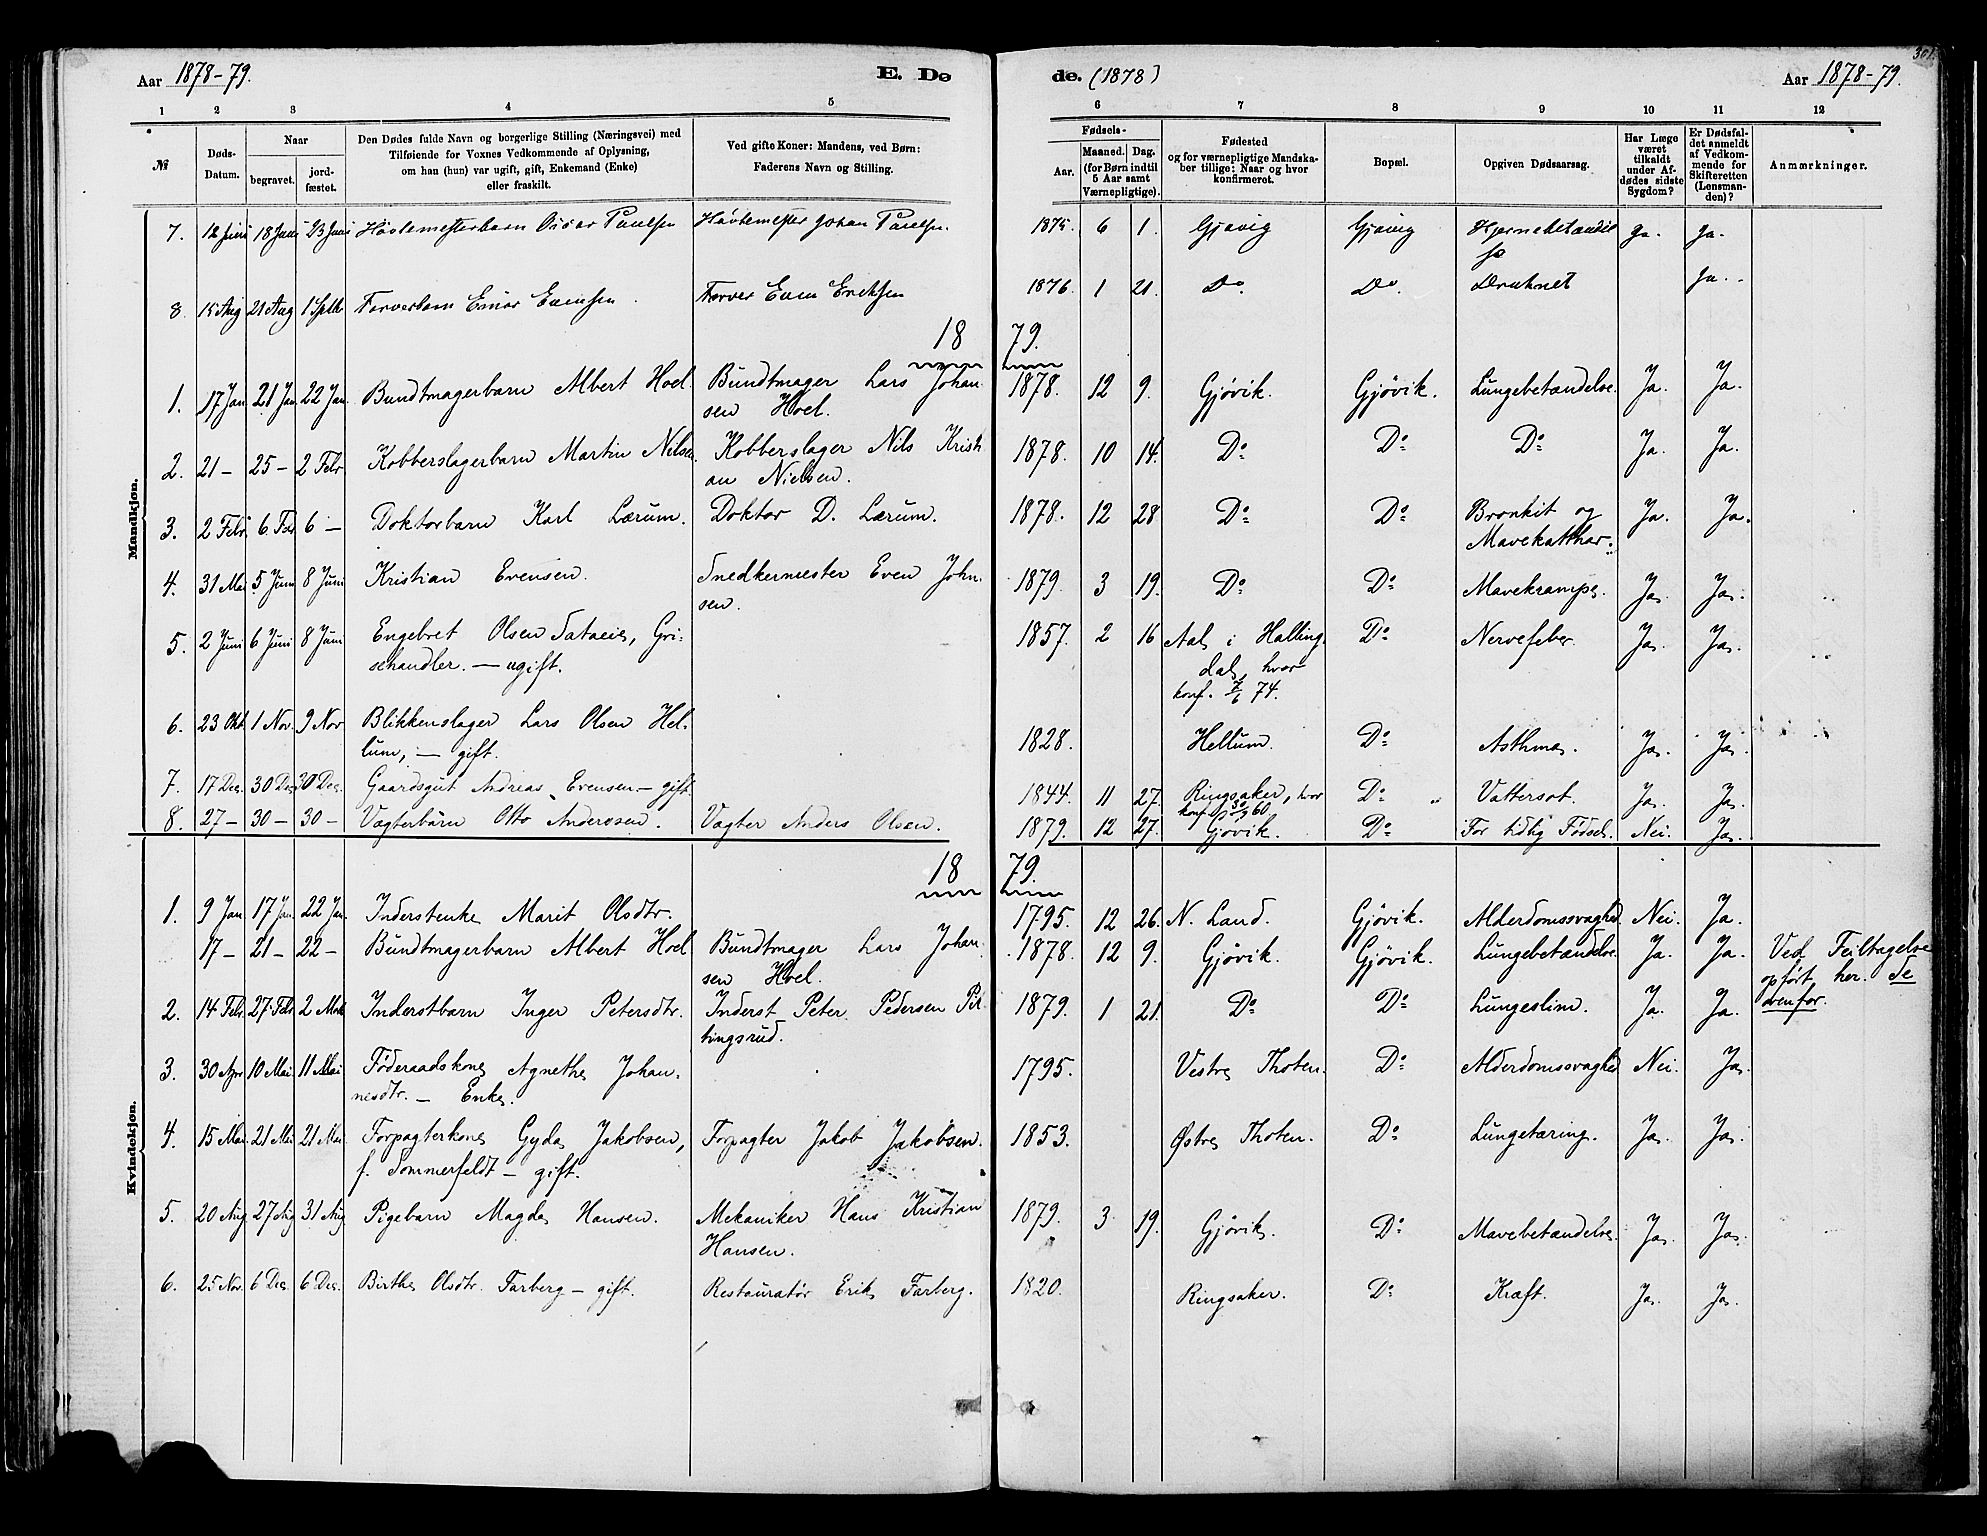 301.
Aar 1878-79.
E. Dø
de. (1878)
Aar 1878-79.
1 2 3 4 5 6 7 8 9 10 11 12
№
Døds-Datum.
Naar
begravet.
jord-fæstet.
Den Dødes fulde Navn og borgerlige Stilling (Næringsvei) med
Tilføiende for Voxnes Vedkommende af Oplysning,
om han (hun) var ugift, gift, Enkemand (Enke)
eller fraskilt.
Ved gifte Koner: Mandens, ved Børn:
Faderens Navn og Stilling.
Fødsels-
Aar.
Maaned. Dag.
(for Børn indtil
5 Aar samt
Værnepligtige).
Fødested
og for værnepligtige Mandska-
ber tillige: Naar og hvor
konfirmeret.
Bopæl.
Opgiven Dødsaarsag.
Har Læge
været
tilkaldt
under Af-
dødes sidste
Sygdom?
Er Dødsfal-
det anmeldt
af Vedkom-
mende for
Skifteretten
(Lensman-
den)?
Anmærkninger.
Mandkjøn.
7. 12 Juni 18 Juni 23 Juni Paulsen Johan Paulsen. 1875. 6 1. Gjøvig Gjøvig Ja. Ja.
8. 15 Aug 21 Aug 1 Septb Farverbarn Einar Evensen. Farver Even Eriksen 1876 1 21. Do. Do. Druknet Ja.
1879.
1. 17 Jan 21 Jan. 22 Jan. Bundtmagerbarn Albert Hoel. Bundtmager Lars Johan- 1878. 12 9. Gjøvik. Gjøvik. Lungebetændelse. Ja. Ja.
sen Hoel.
2. 21 – 25 – 2 Febr Kobberslagerbarn Martin Nilsen. Kobberslager Nils Kristi- 1878. 10 14. Do Do Do Ja. Ja.
an Nielsen.
3. 2 Febr 6 Feb 6 – Doktorbarn Karl Lærum. Doktor D. Lærum. 1878. 12 28 Do Do Bronkit og Ja. Ja.
Mavekatthar.
4. 31 Mai 5 Juni 8 Juni Kristian Evensen. Snedkermester Even John- 1879. 3 19. Do Do Mavekrampe. Ja. Ja.
sen.
5. 2 Juni 6 Juni 8 Juni Engebret Olsen Sataeie, Gri- 1857. 2 16 Aal i Halling- Do Nervefeber. Ja. Ja.
sehandler. – ugift. dal, hvor
konf. 7/6 74.
6. 23 Okt. 1 Nov. 9 Nov Blikkenslager Lars Olsen Hel- 1828. Hellum. Do Asthma. Ja. Ja.
lum, – gift.
7. 17 Dec. 30 Dec 30 Dec. Gaardsgut Andreas Evensen – gift. 1844. 11 27. Ringsaker, hvor Do Vattersot. Ja. Ja.
konf. 30/9 60
8. 27 – 30 – 30 – Vagterbarn Otto Andersen. Vagter Anders Olsen. 1879. 12 27. Gjøvik. Do For tidlig Fødsel. Nei. Ja.
1879.
Kvindekjøn.
1. 9 Jan 17 Jan 22 Jan. Inderstenke Marit Olsdtr. 1795. 12 26. N. Land. Gjøvik. Alderdomssvaghed Nei. Ja.
17 – 21 – 22 – Bundtmagerbarn Albert Hoel Bundtmager Lars Johan- 1878. 12 9. Gjøvik. Gjøvik. Lungebetændelse. Ja. Ja. Ved Feiltagelse
sen Hoel. opført her. Se
ovenfor.
2. 14 Feb. 27 Feb 2 Marts Inderstbarn Inger Petersdtr. Inderst Peter Pedersen Pit- 1879. 1 21. Do Do Lungeslim. Ja. Ja.
tingsrud.
3. 30 Apr 10 Mai 11 Mai Føderaadskone Agnethe Johan- 1795. Vestre Thoten. Do Alderdomssvaghed Nei. Ja.
nesdtr. – Enke.
4. 15 Mai 21 Mai 21 Mai Forpagterkone Gyda Jakobsen, Forpagter Jakob Jakobsen. 1853. Østre Thoten. Do Lungetæring. Ja. Ja.
f. Sommerfeldt – gift.
5. 20 Aug 27 Aug 31 Aug Pigebarn Magda Hansen. Mekaniker Hans Kristian 1879. 3 19. Gjøvik. Do Mavebetændelse. Ja. Ja.
Hansen.
6. 25 Nov. 6 Dec. 6 Dec. Birthe Olsdtr. Farberg – gift. Restauratør Erik Farberg. 1820. Ringsaker. Do Kræft. Ja. Ja.